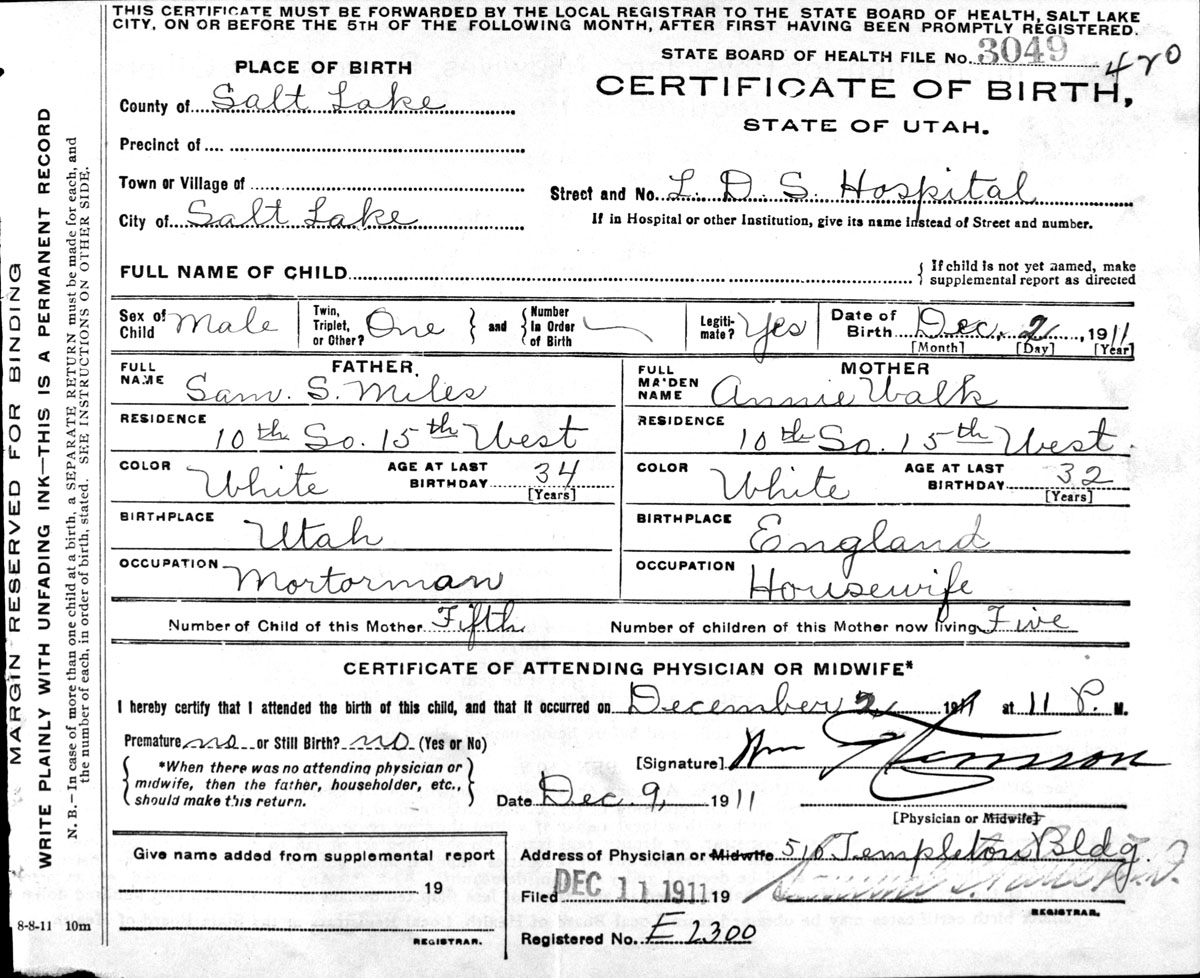 THIS CERTIFICATE MUST BE FORWARDED BY THE LOCAL REGISTRAR TO THE STATE BOARD OF HEALTH, SALT LAKE
CITY, ON OR BEFORE THE 5TH OF THE FOLLOWING MONTH, AFTER FIRST HAVING BEEN PROMPTLY REGISTERED.
STATE BOARD OF HEALTH FILE No. 3049 420
CERTIFICATE OF BIRTH,
STATE OF UTAH.
PLACE OF BIRTH
County of Salt Lake
Precinct of
Town or Village of
City of Salt Lake
Street and No. L. D. S. Hospital
If in Hospital or other Institution, give its name instead of Street and number.
FULL NAME OF CHILD
If child is not yet named, make
supplemental report as directed
Sex of Child Male
Twin, Triplet, or Other? One
and Number in Order of Birth
Legiti-mate? Yes
Date of Birth Dec. 2, 1911
[Month] [Day] [Year]
FATHER
FULL NAME Sam. S. Miles
RESIDENCE 10th So. 15th West
COLOR White AGE AT LAST BIRTHDAY 34
[Years]
BIRTHPLACE Utah
OCCUPATION Mortorman
MOTHER
FULL MAIDEN NAME Annie Walk
RESIDENCE 10th So. 15th West.
COLOR White AGE AT LAST BIRTHDAY 32
[Years]
BIRTHPLACE England
OCCUPATION Housewife
Number of Child of this Mother Fifth Number of children of this Mother now living Five
CERTIFICATE OF ATTENDING PHYSICIAN OR MIDWIFE*
I hereby certify that I attended the birth of this child, and that it occurred on December 2, 1911 at 11 P. M.
Premature no or Still Birth? no (Yes or No)
*When there was no attending physician or
midwife, then the father, householder, etc.,
should make this return.
[Signature] Wm
Date Dec 9, 1911
[Physician or Midwife]
Give name added from supplemental report
19
REGISTRAR.
Address of Physician or Midwife 510 Templeton Bldg.
Filed DEC 11 1911 19
REGISTRAR.
Registered No. E 2300
8-8-11 10m
MARGIN RESERVED FOR BINDING
WRITE PLAINLY WITH UNFADING INK—THIS IS A PERMANENT RECORD
N. B.—In case of more than one child at a birth, a SEPARATE RETURN must be made for each, and
the number of each, in order of birth, stated. SEE INSTRUCTIONS ON OTHER SIDE.